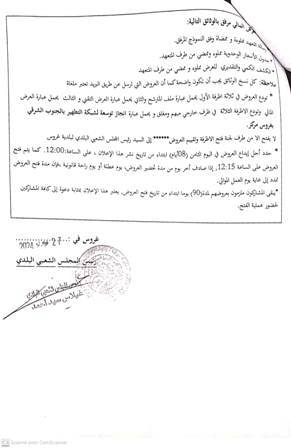 العرض المالي مرفق بالوثائق التالية:
رسالة تعهد مملوءة و ممضاة وفق النموذج المرفق.
جدول الأسعار الوحدوية مملوء وممضي من طرف المتعهد.
الكشف الكمي والتقديري للعرض مملوء و ممضي من طرف المتعهد
ملاحظة: كل نسخ الوثائق يجب أن تكون واضحة كما أن العروض التي ترسل عن طريق البريد تعتبر ملغاة
* توضع العروض في ثلاثة اظرفة الأول يحمل عبارة ملف المترشح والثاني يحمل عبارة العرض التقني و الثالث يحمل عبارة العرض
المالي وتوضع الاظرفة الثلاثة في ظرف خارجي مبهم ومغلق و يحمل عبارة انجاز توسعة لشبكة التطهير بالجنوب الشرقي
بغروس مركز.
لا يفتح الا من طرف لجنة فتح الاظرفة وتقييم العروض****** إلى السيد رئيس المجلس الشعبي البلدي لبلدية غروس
* حدد أجل إيداع العروض في اليوم الثامن (08)أيام ابتداء من تاريخ نشر هذا الإعلان ، على الساعة:12:00. كما يتم فتح
العروض على الساعة 12:15, إذا صادف أخر يوم من مدة تحضير العروض، يوم عطلة أو يوم راحة قانونية ،فإن مدة فتح العروض
تمدد إلى غاية يوم العمل الموالي.
*يبقى المشاركون ملزمون بعروضهم لمدة(90) يوما ابتداء من تاريخ فتح العروض، يعتبر هذا الإعلان بمثابة دعوة إلى كافة المشاركين
لحضور عملية الفتح.
غروس في :
رئيس المجلس الشعبي البلدي
رئيس المجلس الشعبي البلدي
Scanned with CamScanner